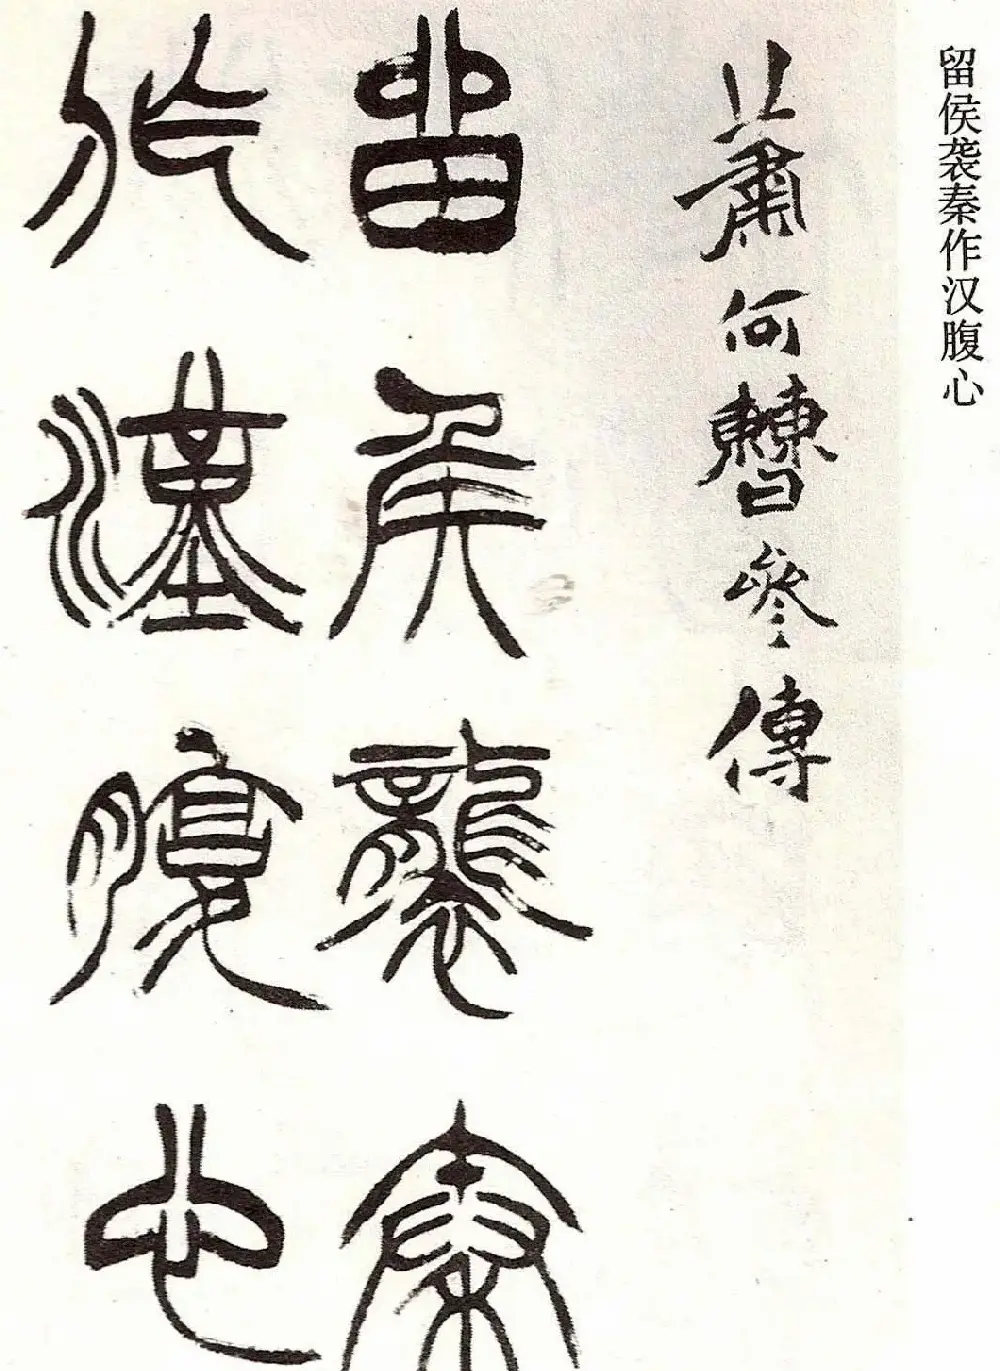 留侯袭秦作汉腹心
蕭何曹參傳
留侯襲秦
作漢腹心